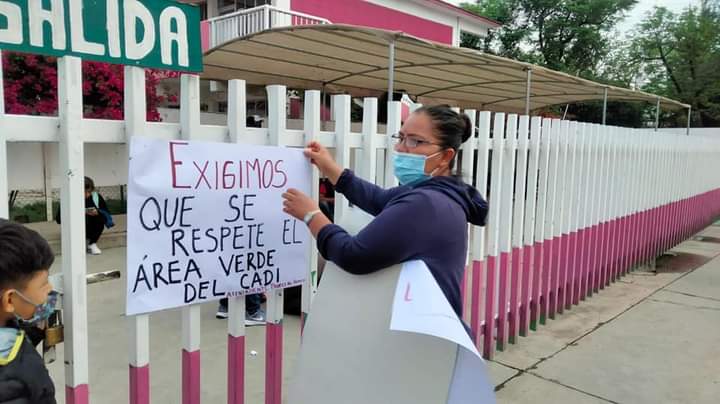 SALIDA
EXIGIMOS
QUE SE
RESPETE EL
ÁREA VERDE
DEL CADI